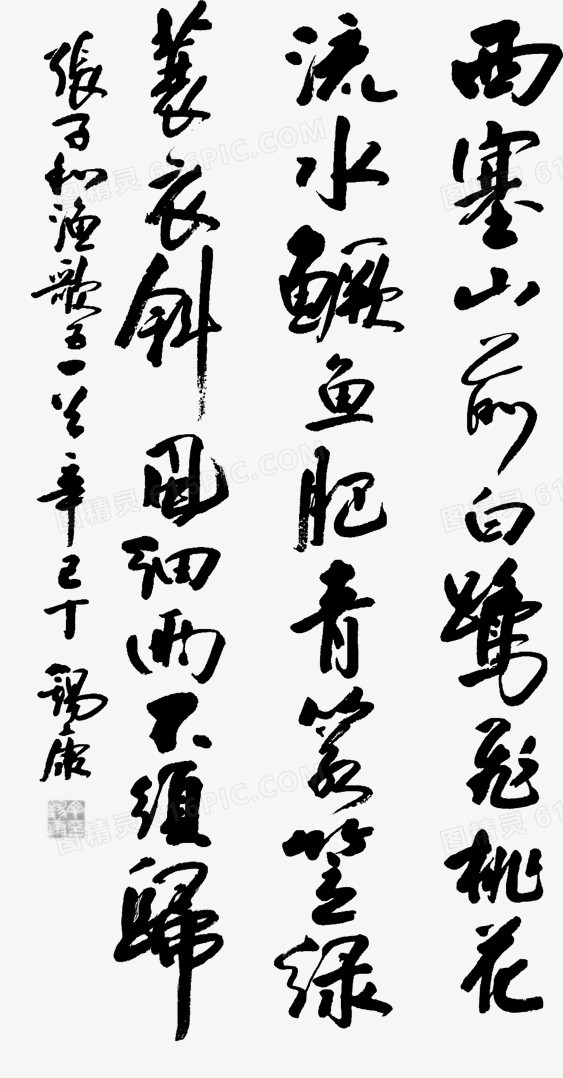 西塞山前白鹭飛桃花
流水鳜鱼肥青箬笠绿
蓑衣斜風细雨不須歸
張子和渔歌子一首辛巳丁錫康
图精灵 616PIC.COM